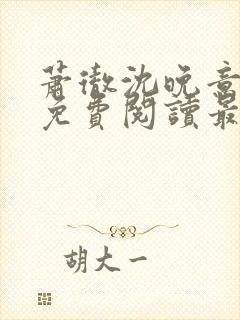 蕭徹沈晚意
免費閱讀最
胡大一